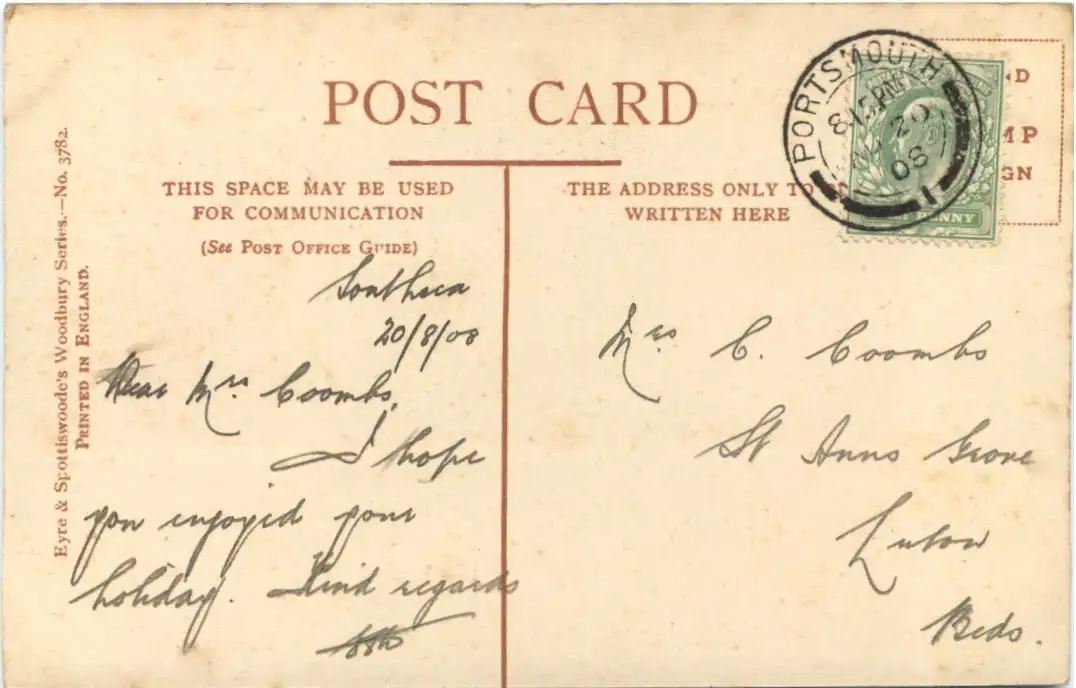 POST CARD
THIS SPACE MAY BE USED
FOR COMMUNICATION
(See POST OFFICE GUIDE)
THE ADDRESS ONLY TO
WRITTEN HERE
Eyre & Spottiswoode's Woodbury Series.—No. 3782.
PRINTED IN ENGLAND.
PORTSMOUTH
8.15PM
20
08
1
PENNY
D
MP
GN
Southsea
20/8/08
Dear Mrs. Coombs,
I hope
you enjoyed your
holiday. Kind regards
Mrs C. Coombs
St Anns Grove
Luton
Beds.